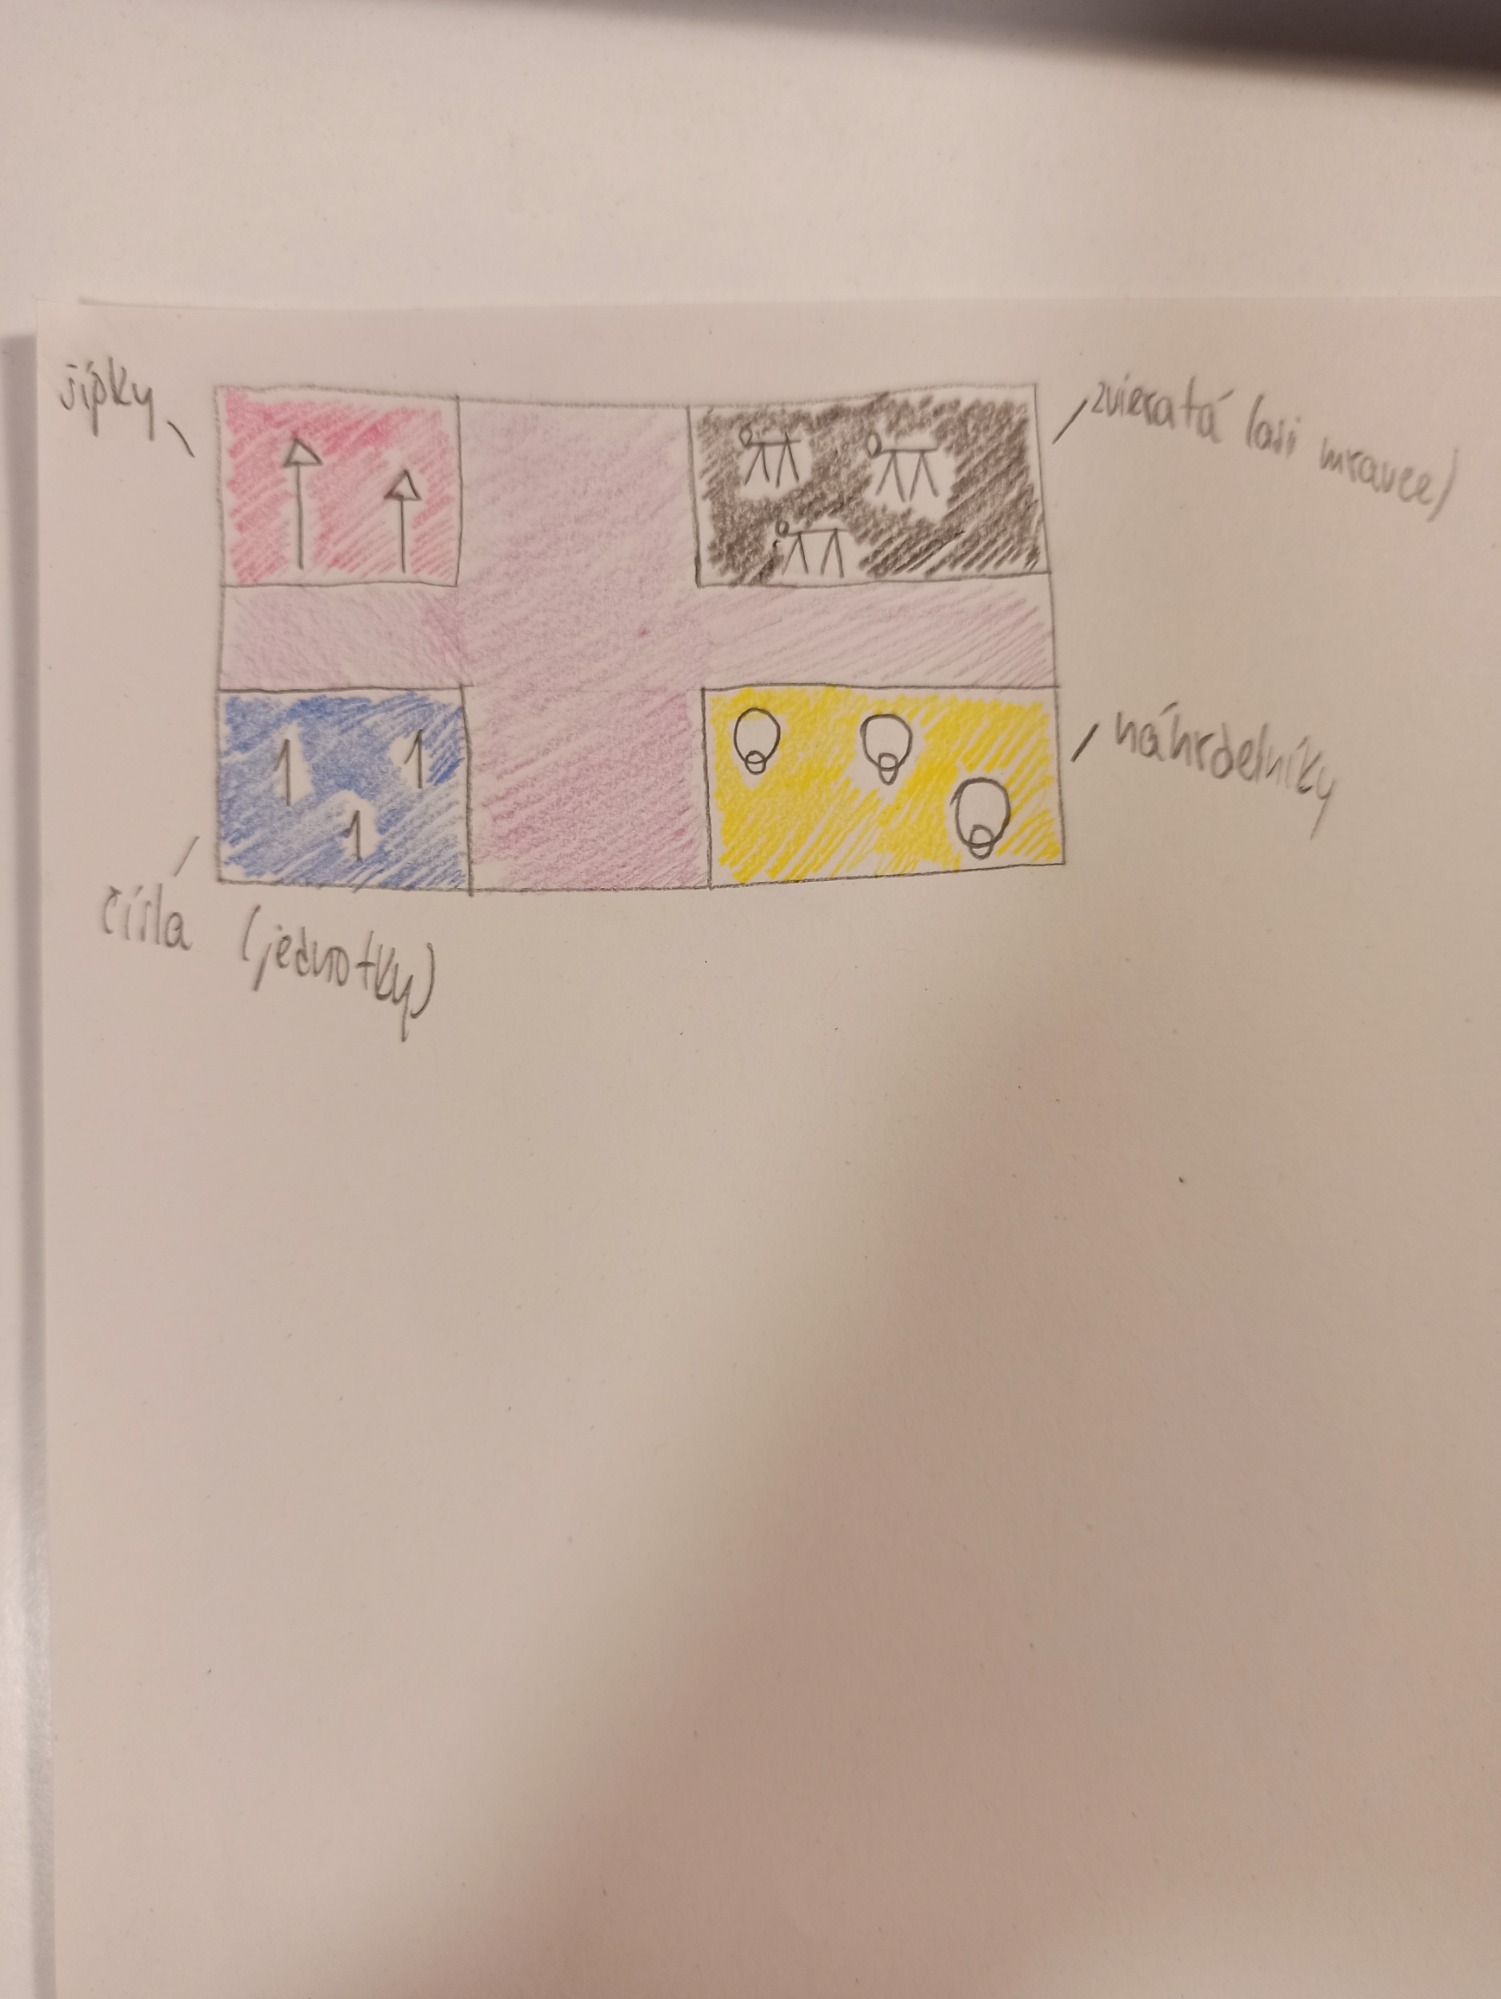 šípky
zvieratá (asi mravce)
1 1
1
náhrdelníky
čísla (jednotky)